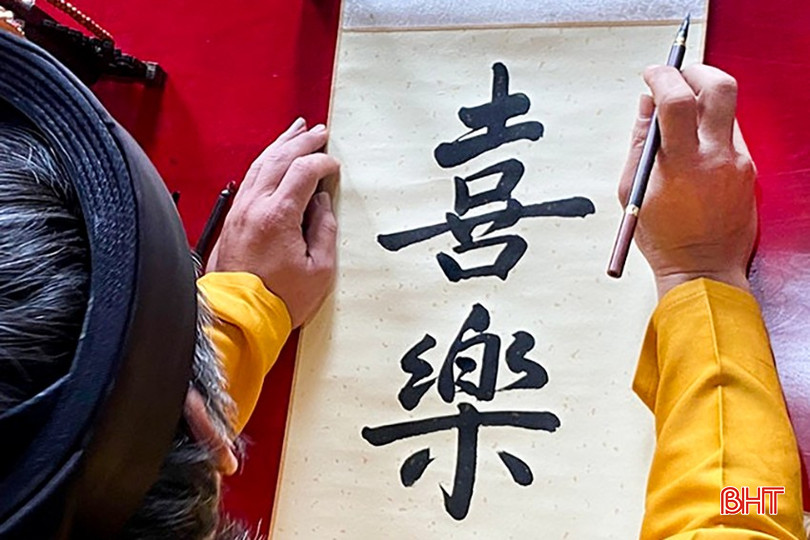 喜
樂
BHT